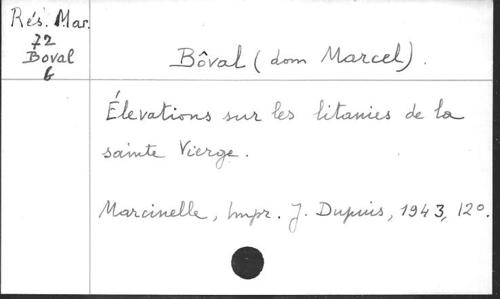 Rés. Mar.
72
Boval
6
Bôval (dom Marcel).
Élevations sur les litanies de la
sainte Vierge.
Marcinelle, Impr. J. Dupuis, 1943, 12°.